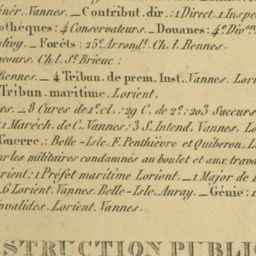 énér. Vannes. _ Contribut. dir. : 1 Direct. 1 Inspe
othèques: 4 Conservateurs. _ Douanes: 4e Div.on
_ Forêts: 15e Arrondt. Ch. l. Rennes.
cours. Ch. l. St. Brieuc:
Rennes. _ 4 Tribun. de prem. Inst. Vannes. Lori
Tribun. maritime. Lorient.
es. _ 8 Cures de 1e cl.: 29 C. de 2e: 203 Succurs
1 Maréch. de C. Vannes: 3 S. Intend. Vannes. Lo
Guerre. Belle-Isle. F. Penthièvre et Quiberon. L
ur les militaires condamnés au boulet et aux trava
orient: 1 Préfet maritime Lorient. _ 1 Major de
6 Lorient. Vannes. Belle-Isle. Auray. _ Génie: 1
nvalides. Lorient. Vannes.
STRUCTION PUBLI